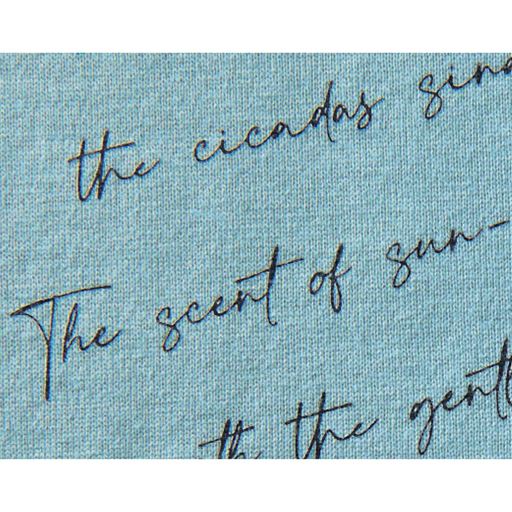 the cicadas sing
The scent of sun-
th the gentl